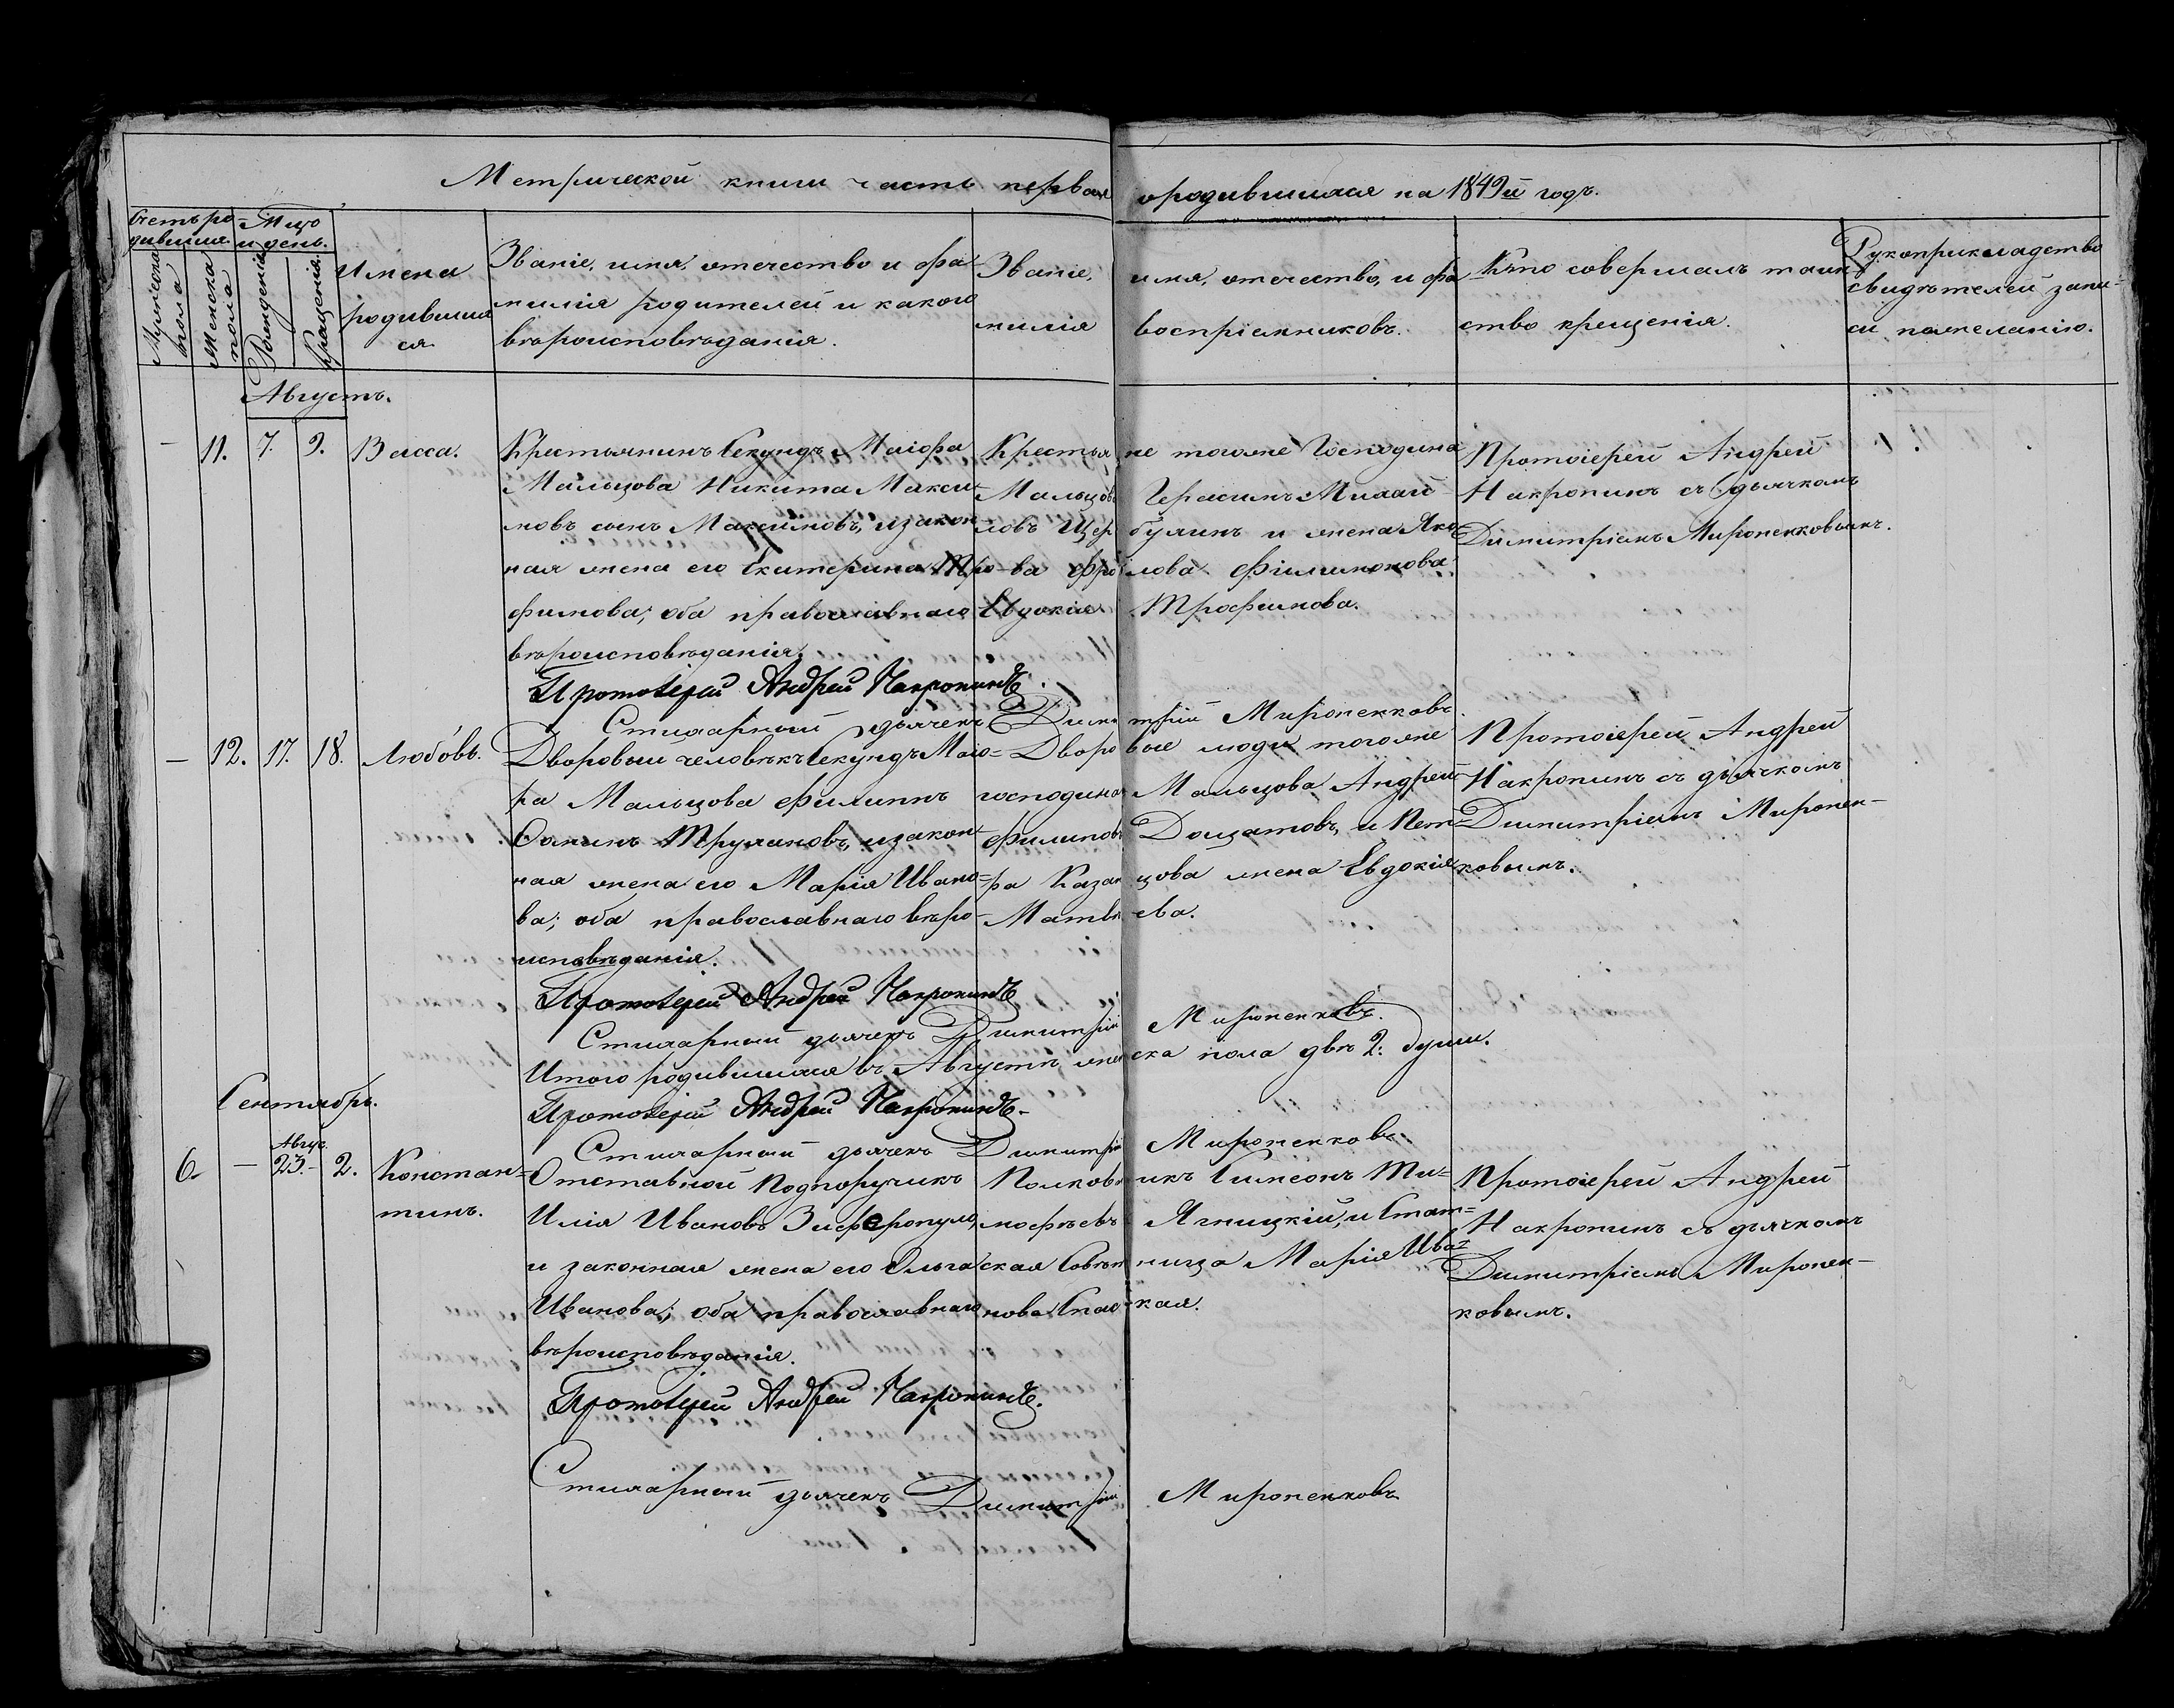 Метрической книги часть первая ородившихся на 1849й годъ.
Счетъ ро-
дившихся.
Мѣсяц
и день.
Мужеска
пола
Женска
пола
Рожденія
Крещенія.
Имена
родивших
ся.
Званіе, имя, отечество и фа
милія родителей и какого
вѣроисповѣданія.
Званіе, имя, отечество, и фа
милія воспріемниковъ.
Кто совершалъ таин
ство крещенія.
Рукоприкладство
свидѣтелей запи-
си пожеланію.
Августъ.
– 11. 7. 9. Васса.
Крестьянинъ Секундъ Маіора
Мальцова Никита Макси-
мовъ сынъ Максимовъ, изакон
ная жена его Екатерина Тро-
фимова; оба православнаго
вѣроисповѣданія.
Крестья не тогоже Господина
Мальцова Герасимъ
и жена Яко
ва Фро лова Филимонова
Евдокія Трофимова.
Протоіерей Андрей
Накропинъ съ дьячкомъ
Димитріемъ Мироненковымъ.
Протоіерей Андрей Накропинъ.
Стихарный дьячекъ Дими трій Мироненковъ.
– 12. 17. 18. Любовь.
Дворовый человѣкъ Секундъ Маіо-
ра Мальцова Филиппъ
Ѳоминъ изакон-
ная жена его Марія Ивано-
ва; оба православнаго вѣро-
исповѣданія.
Дворо вые люди тогоже
господина Мальцова Андрей
Филипов и Пет-
ра Казан цова жена Евдокія
Матвѣ ева.
Протоіерей Андрей
Накропинъ съ дьячкомъ
Димитріемъ Миронен-
ковымъ.
Протоіерей Андрей Накропинъ
Стихарный дьячекъ Димитрій Мироненковъ.
Итого родившихся въ Августѣ жен ска пола двѣ 2: души.
Протоіерей Андрей Накропинъ.
Стихарный дьячекъ Димитрій Мироненковъ.
Сентябрь.
6. – Авгус. 23.– 2. Констан=
тинъ.
Отставной Подпоручикъ
Илія Ивановъ Зиферопуло,
и законная жена его Ольга
Иванова; оба православнаго
вѣроисповѣданія.
Полковн икъ Симеонъ Ти=
мофѣевъ Ягницкій, и Стат=
ская Совѣт ница Марія Ива=
нова кая.
Протоіерей Андрей
Накропинъ съ дьячкомъ
Димитріемъ Миронен-
ковымъ.
Протоіерей Андрей Накропинъ.
Стихарный дьячекъ Димитрій Мироненковъ